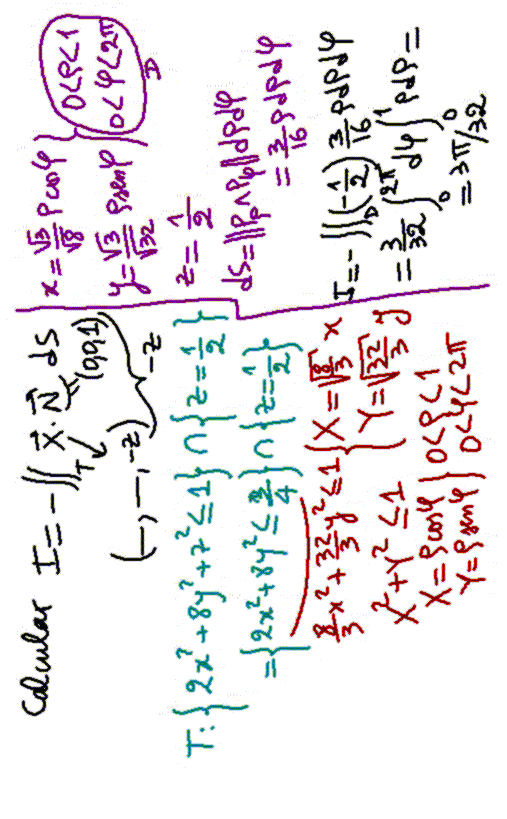 Calcular I = - ∬_T X⃗ · N⃗ dS
(0,0,1)
(—, —, -z) -z
T: {2x² + 8y² + z² ≤ 1} ∩ {z = 1/2}
= {2x² + 8y² ≤ 3/4} ∩ {z = 1/2}
8/3 x² + 32/3 y² ≤ 1 { X = √(8/3) x
Y = √(32/3) y
X² + Y² ≤ 1
X = ρ cos φ } 0 < ρ < 1
Y = ρ sen φ } 0 < φ < 2π
x = √3/√8 ρ cos φ } 0 < ρ < 1
y = √3/√32 ρ sen φ } 0 < φ < 2π
D
z = 1/2
dS = ||P_ρ ∧ P_φ|| dρ dφ
= 3/16 ρ dρ dφ
I = - ∬_D (-1/2) 3/16 ρ dρ dφ
= 3/32 ∫₀^2π dφ ∫₀^1 ρ dρ =
= 3π/32